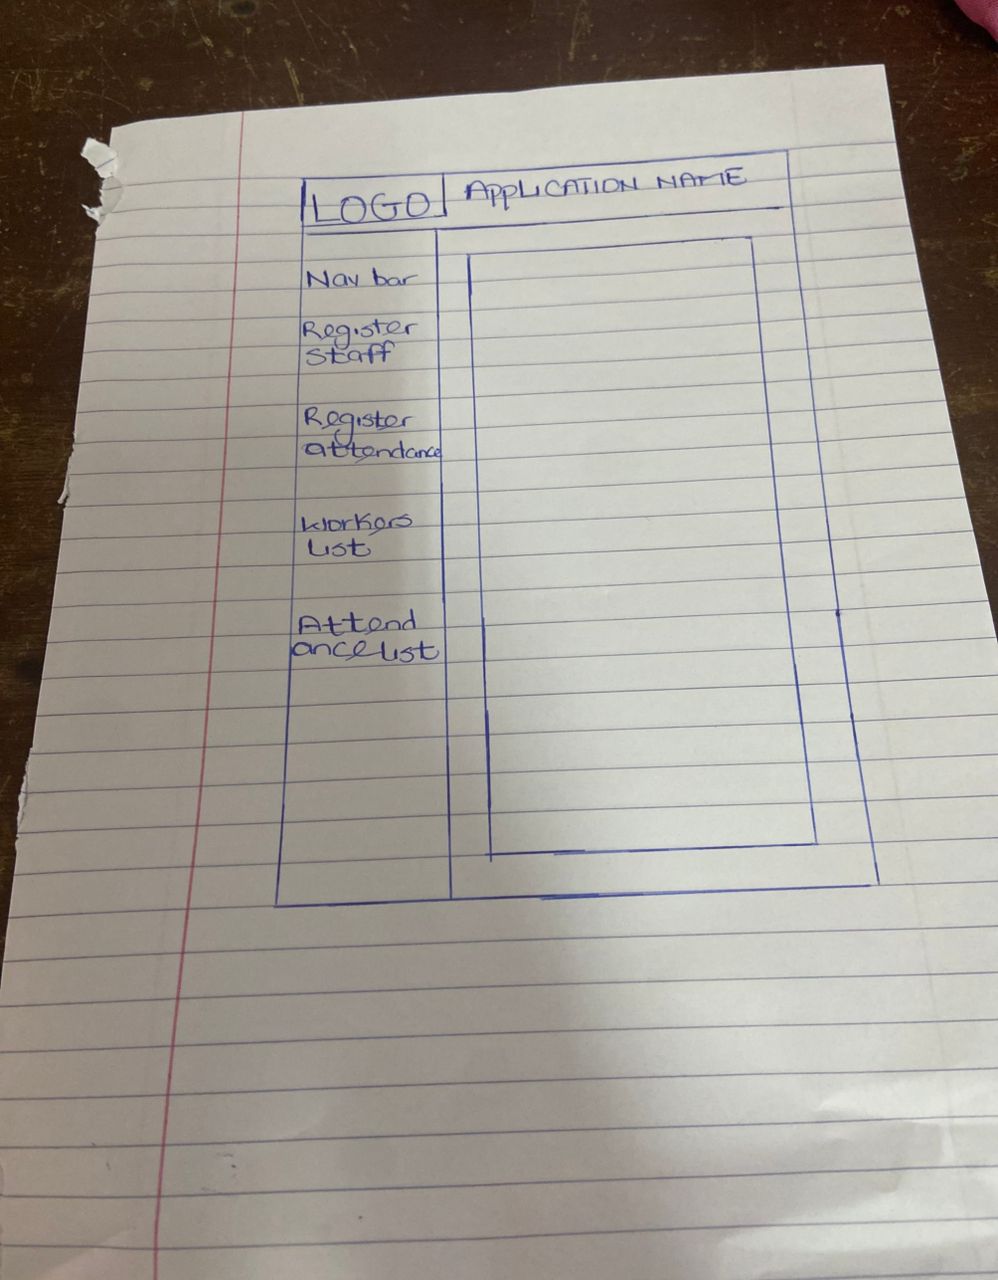 LOGO
APPLICATION NAME
Nav bar
Register
staff
Register
attendance
Workers
List
Attend
ance list